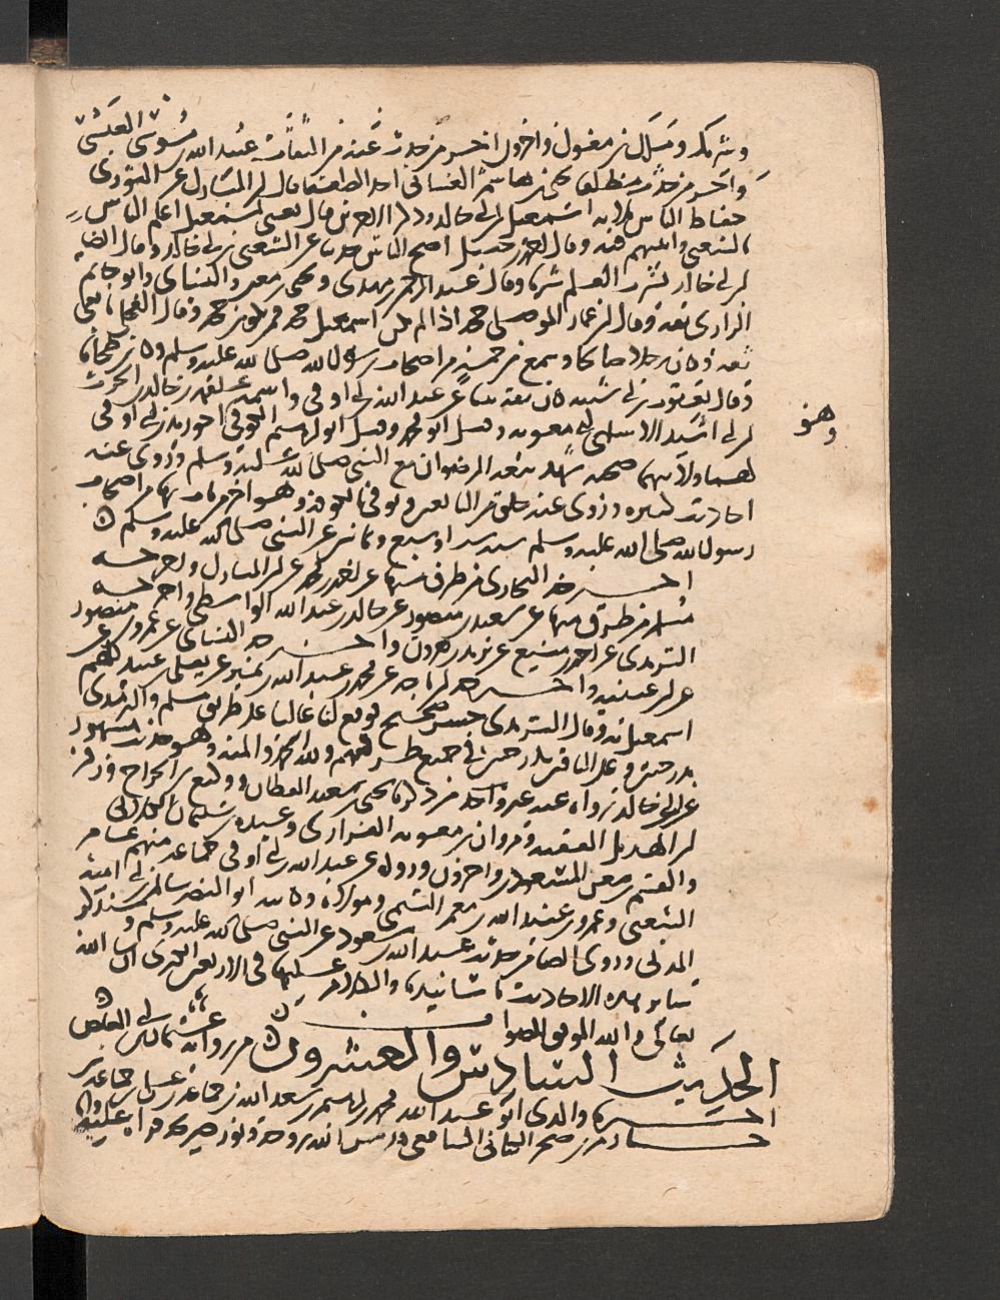 وشريك ومالك بن مغول وآخرون آخر من حدث عنه من الثقات عبيد الله بن موسى العبسي
وآخر من حدث مطلقا يحيى بن هاشم الغساني احد الضعفا قال ابن المبارك عن الثوري
حفاظ الناس ثلاثة اسمعيل بن ابي خالد وذكر الاخرين قال يعني اسمعيل اعلم الناس
بالشعبي واثبتهم فيه وقال احمد بن حنبل اصح الناس حديثا عن الشعبي ابن ابي خالد وقال ايضا
ابن ابي خالد يشرب العلم شربا وقال عبد الرحمن بن مهدي ويحيى بن معين والنسائي وابو حاتم
الرازي ثقة وقال ابن عمار الموصلي حجة اذا لم يكن اسمعيل حجة فمن يكون حجة وقال العجلي تابعي
ثقة وكان رجلا صالحا وسمع من خمسة من اصحاب رسول الله صلى الله عليه وسلم وكان طحانا
وقال يعقوب بن ابي شيبة كان ثقة ثبتا عن عبد الله بن ابي اوفى واسمه علقمة بن خالد بن الحرث
ابن ابي اسيد الاسلمي ابي معوية وقيل ابو محمد وقيل ابو ابراهيم الكوفي اخو زيد بن ابي اوفى
وهو
لهما ولابيهما صحبة شهد بيعة الرضوان مع النبي صلى الله عليه وسلم وروى عنه
احاديث كثيرة وروى عنه خلق من التابعين وتوفي بالكوفة وهو اخر من مات بها من اصحاب
رسول الله صلى الله عليه وسلم سنة ست او سبع وثمانين عن النبي صلى الله عليه وسلم
اخرجه البخاري من طرق منها عن احمد بن محمد عن ابن المبارك واخرجه
مسلم من طرق منها عن سعيد بن منصور عن خالد بن عبد الله الواسطي واخرجه
الترمذي عن احمد بن منيع عن يزيد بن هرون واخرجه النسائي عن محمد بن منصور
عن ابن عيينة واخرجه ابن ماجه عن محمد بن عبد الله بن نمير عن يعلى بن عبيد كلهم عن
اسمعيل به وقال الترمذي حسن صحيح فوقع لنا عاليا على طريق مسلم والترمذي
بدرجتين وعلى الباقين بدرجة في جميع طرقهم ولله الحمد والمنة وهو حديث مشهور
عن ابن ابي خالد رواه عنه غير واحد منهم يحيى بن سعيد القطان ووكيع بن الجراح وزفر
ابن الهذيل الفقيه ومروان بن معوية الفزاري وعبدة بن سليمان الكلابي
والقسم بن معن المسعودي واخرون ورواه عن عبد الله بن ابي اوفى جماعة منهم عامر
الشعبي وعمر بن عبيد الله بن معمر التيمي ومولاه وكاتبه ابو النضر سالم بن ابي امية
المدني وروي ايضا من حديث عبد الله بن مسعود عن النبي صلى الله عليه وسلم و
سياتي هذه الاحاديث باسانيدها والكلام عليها في الاربعين الاخرى ان شا الله
تعالى والله الموفق للصواب
الحديث السادس والعشرون من رواية عثمان بن ابي العاص
اخبرنا والدي ابو عبد الله محمد بن ابراهيم بن سعد الله بن جماعة بن علي بن جماعة بن
حازم بن صخر الكناني الشافعي قدس الله روحه ونور ضريحه قراة عليه وانا